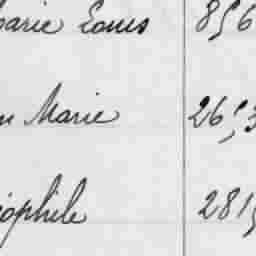 Marie Louis 856
n Marie 26
ophile 281